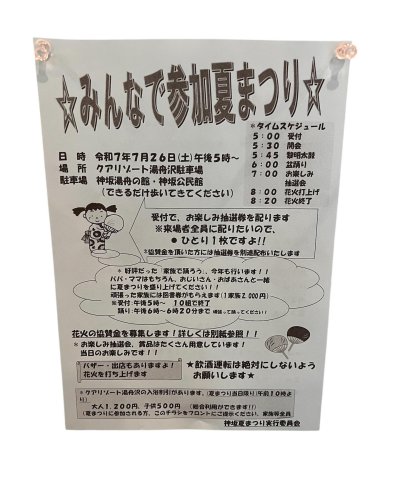 ☆みんなで参加夏まつり☆
日 時 令和7年7月26日(土)午後5時～
場 所 クアリゾート湯舟沢駐車場
駐車場 神坂湯舟の館・神坂公民館
(できるだけ歩いてきてください)
*タイムスケジュール
5:00 受付
5:30 開会
5:45 黎明太鼓
6:00 盆踊り
7:00 お楽しみ
抽選会
8:00 花火打上げ
8:20 花火終了
受付で、お楽しみ抽選券を配ります
※来場者全員に配りたいので、
●ひとり1枚ですよ!!
*協賛金を頂いた方には抽選券を別途配布いたします
*好評だった「家族で踊ろう」、今年も行います!!
パパ・ママはもちろん、おじいさん・おばあさんと一緒
に夏まつりを盛り上げてください!!
頑張った家族には図書券がもらえます(1家族2,000円)
※受付:午後5時～ 10組で終了
踊り:午後6時～6時20分まで 頑張って踊ってください!
花火の協賛金を募集します!詳しくは別紙参照!!
*お楽しみ抽選会、賞品はたくさん用意しています!
当日のお楽しみです!!
バザー・出店もありますよ!
花火を打ち上げます
★飲酒運転は絶対にしないよう
お願いします★
*クアリゾート湯舟沢の入浴割引があります。(夏まつり当日限り)(午前10時よ
り)
大人1,200円、子供500円 (総合利用ができます!!)
夏まつりに参加される方、このチラシをフロントにご提示ください、家族等全員
神坂夏まつり実行委員会